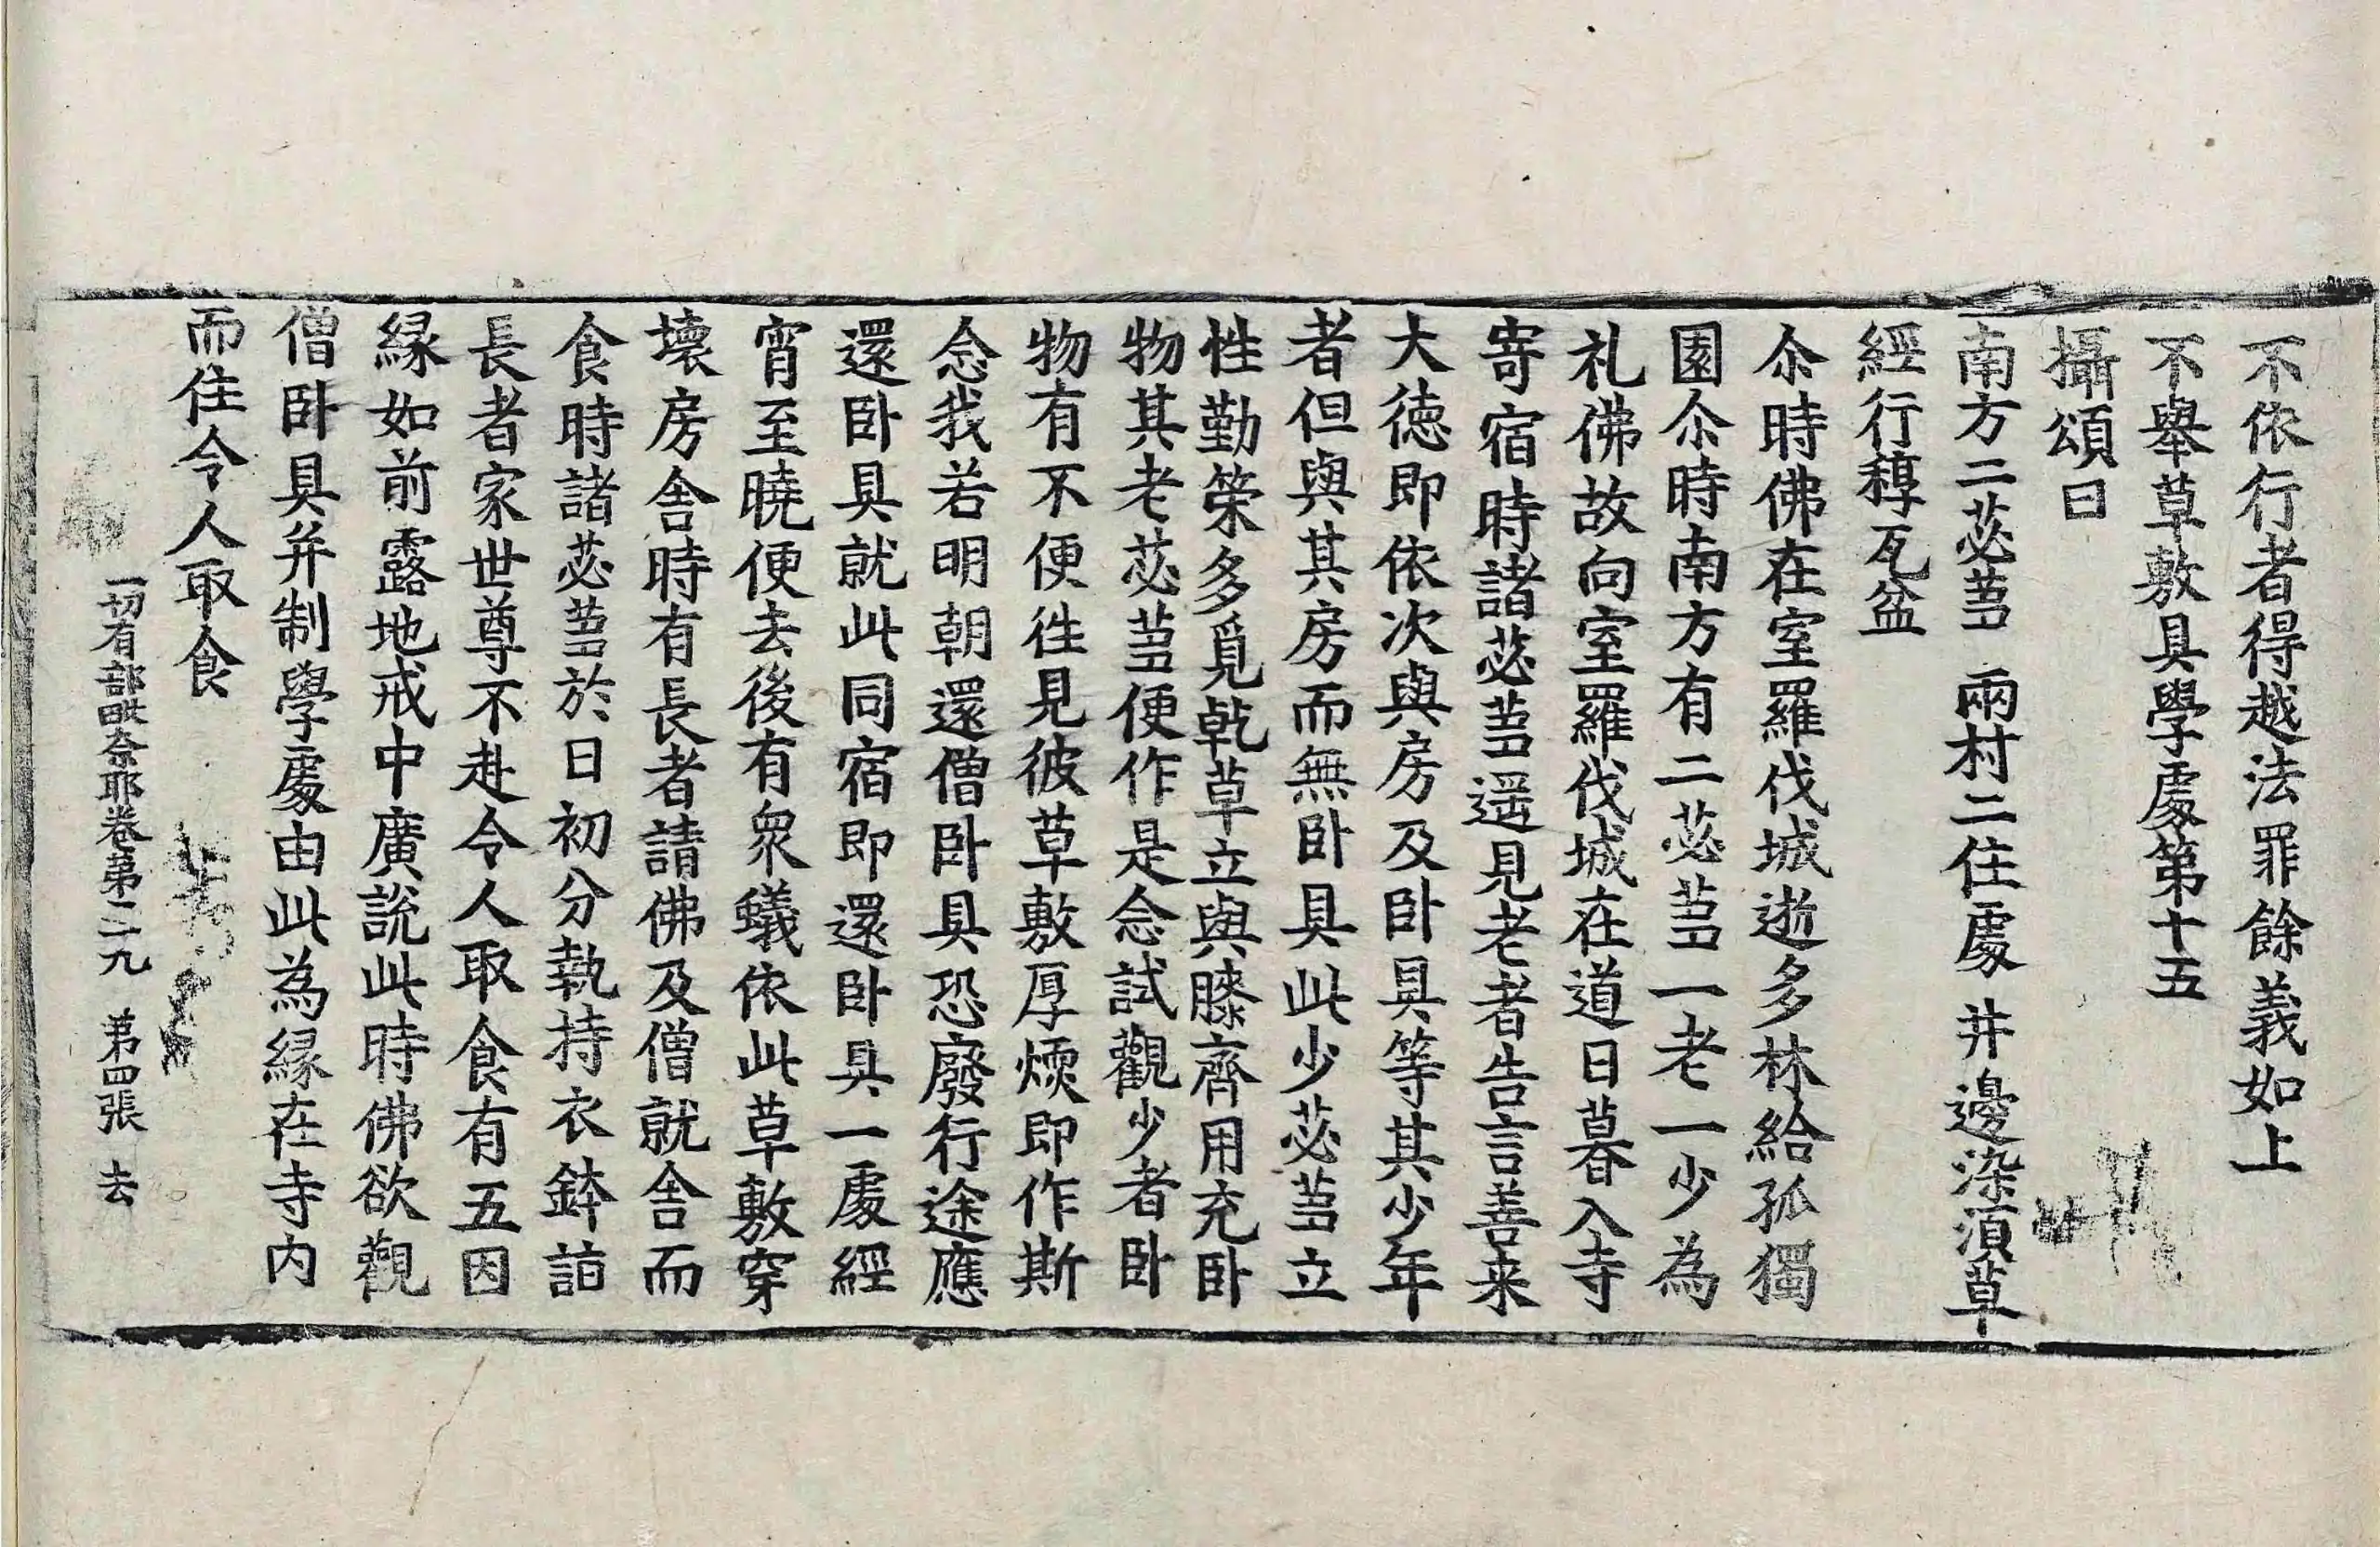 不依行者得越法罪餘義如上
不舉草敷具學處第十五
攝頌曰
南方二苾芻　兩村二住處　井邊染須草
經行稕瓦盆
尒時佛在室羅伐城逝多林給孤獨
園尒時南方有二苾芻一老一少為
礼佛故向室羅伐城在道日暮入寺
寄宿時諸苾芻遥見老者告言善来
大德即依次與房及卧具等其少年
者但與其房而無卧具此少苾芻立
性勤策多覓乾草立與膝齊用充卧
物其老苾芻便作是念試觀少者卧
物有不便徃見彼草敷厚煗即作斯
念我若明朝還僧卧具恐廢行途應
還卧具就此同宿即還卧具一處經
宵至曉便去後有衆蟻依此草敷穿
壞房舎時有長者請佛及僧就舎而
食時諸苾芻於日初分執持衣鉢詣
長者家世尊不赴令人取食有五因
緣如前露地戒中廣說此時佛欲觀
僧卧具并制學處由此為緣在寺内
而住令人取食
一切有部毗奈耶卷第二九　第四張　去